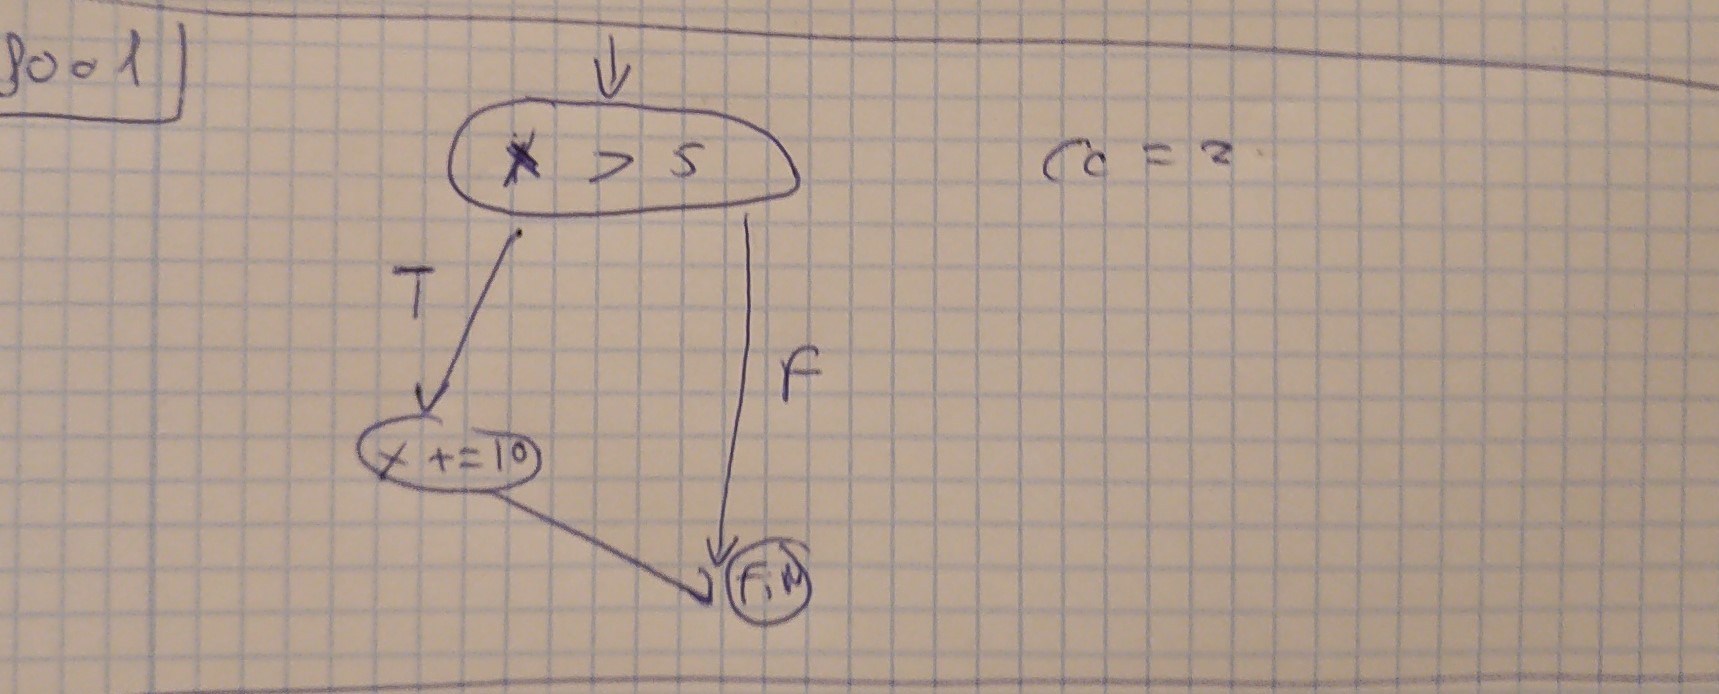 foo1
x > 5
CC = 2
T
F
x += 10
Fin